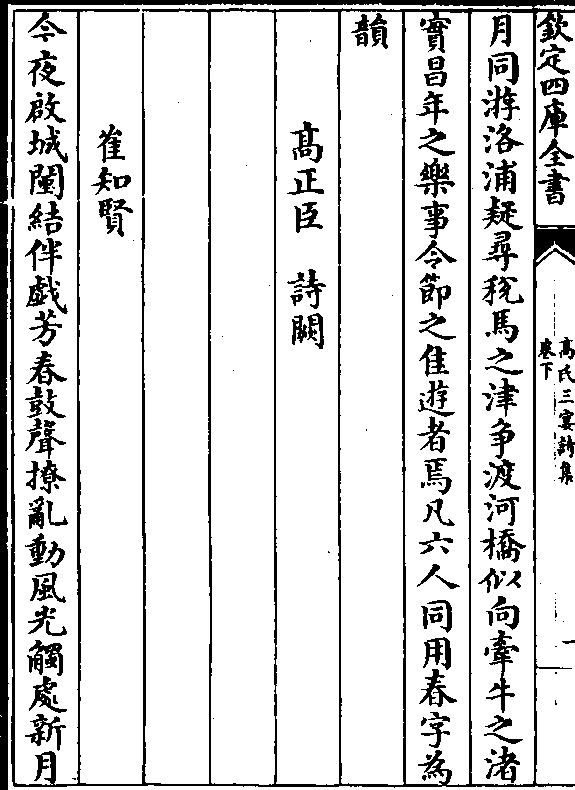 欽定四庫全書
髙氏三宴詩集
卷下
一
月同游洛浦疑尋稅馬之津争渡河橋似向牽牛之渚
實昌年之樂事令節之佳遊者焉凡六人同用春字為
韻
髙正臣　詩闕
崔知賢
今夜啟城闉結伴戯芳春鼓聲撩亂動風光觸處新月